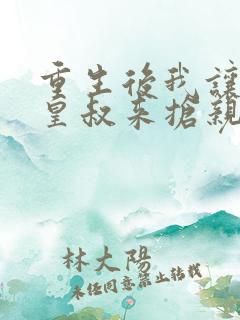 重生後我讓
皇叔來搶親
林大陽
未經同意禁止轉載